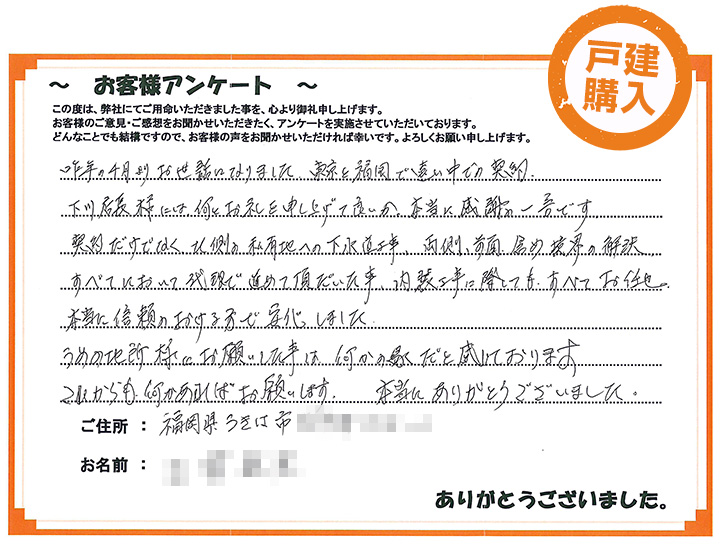 戸建
購入
~ お客様アンケート ~
この度は、弊社にてご用命いただきました事を、心より御礼申し上げます。
お客様のご意見・ご感想をお聞かせいただきたく、アンケートを実施させていただいております。
どんなことでも結構ですので、お客様の声をお聞かせいただければ幸いです。よろしくお願い申し上げます。
昨年の4月よりお世話になりました、東京と福岡で遠い中での契約、
下川店長様には、何とお礼を申し上げて良いか、本当に感謝の一言です
契約だけでなく、北側の私有地への下水道工事、両側、前面、含め境界の解決
すべてにおいて 代理で進めて頂だいた事、内装工事に際しても、すべてお任せ。
本当に信頼のおける方で安心しました。
うめの地所様にお願いした事は、何かの縁だと感じております
これからも、何かあればお願いします。 本当にありがとうございました。
ご住所 : 福岡県うきは市
お名前 :
ありがとうございました。